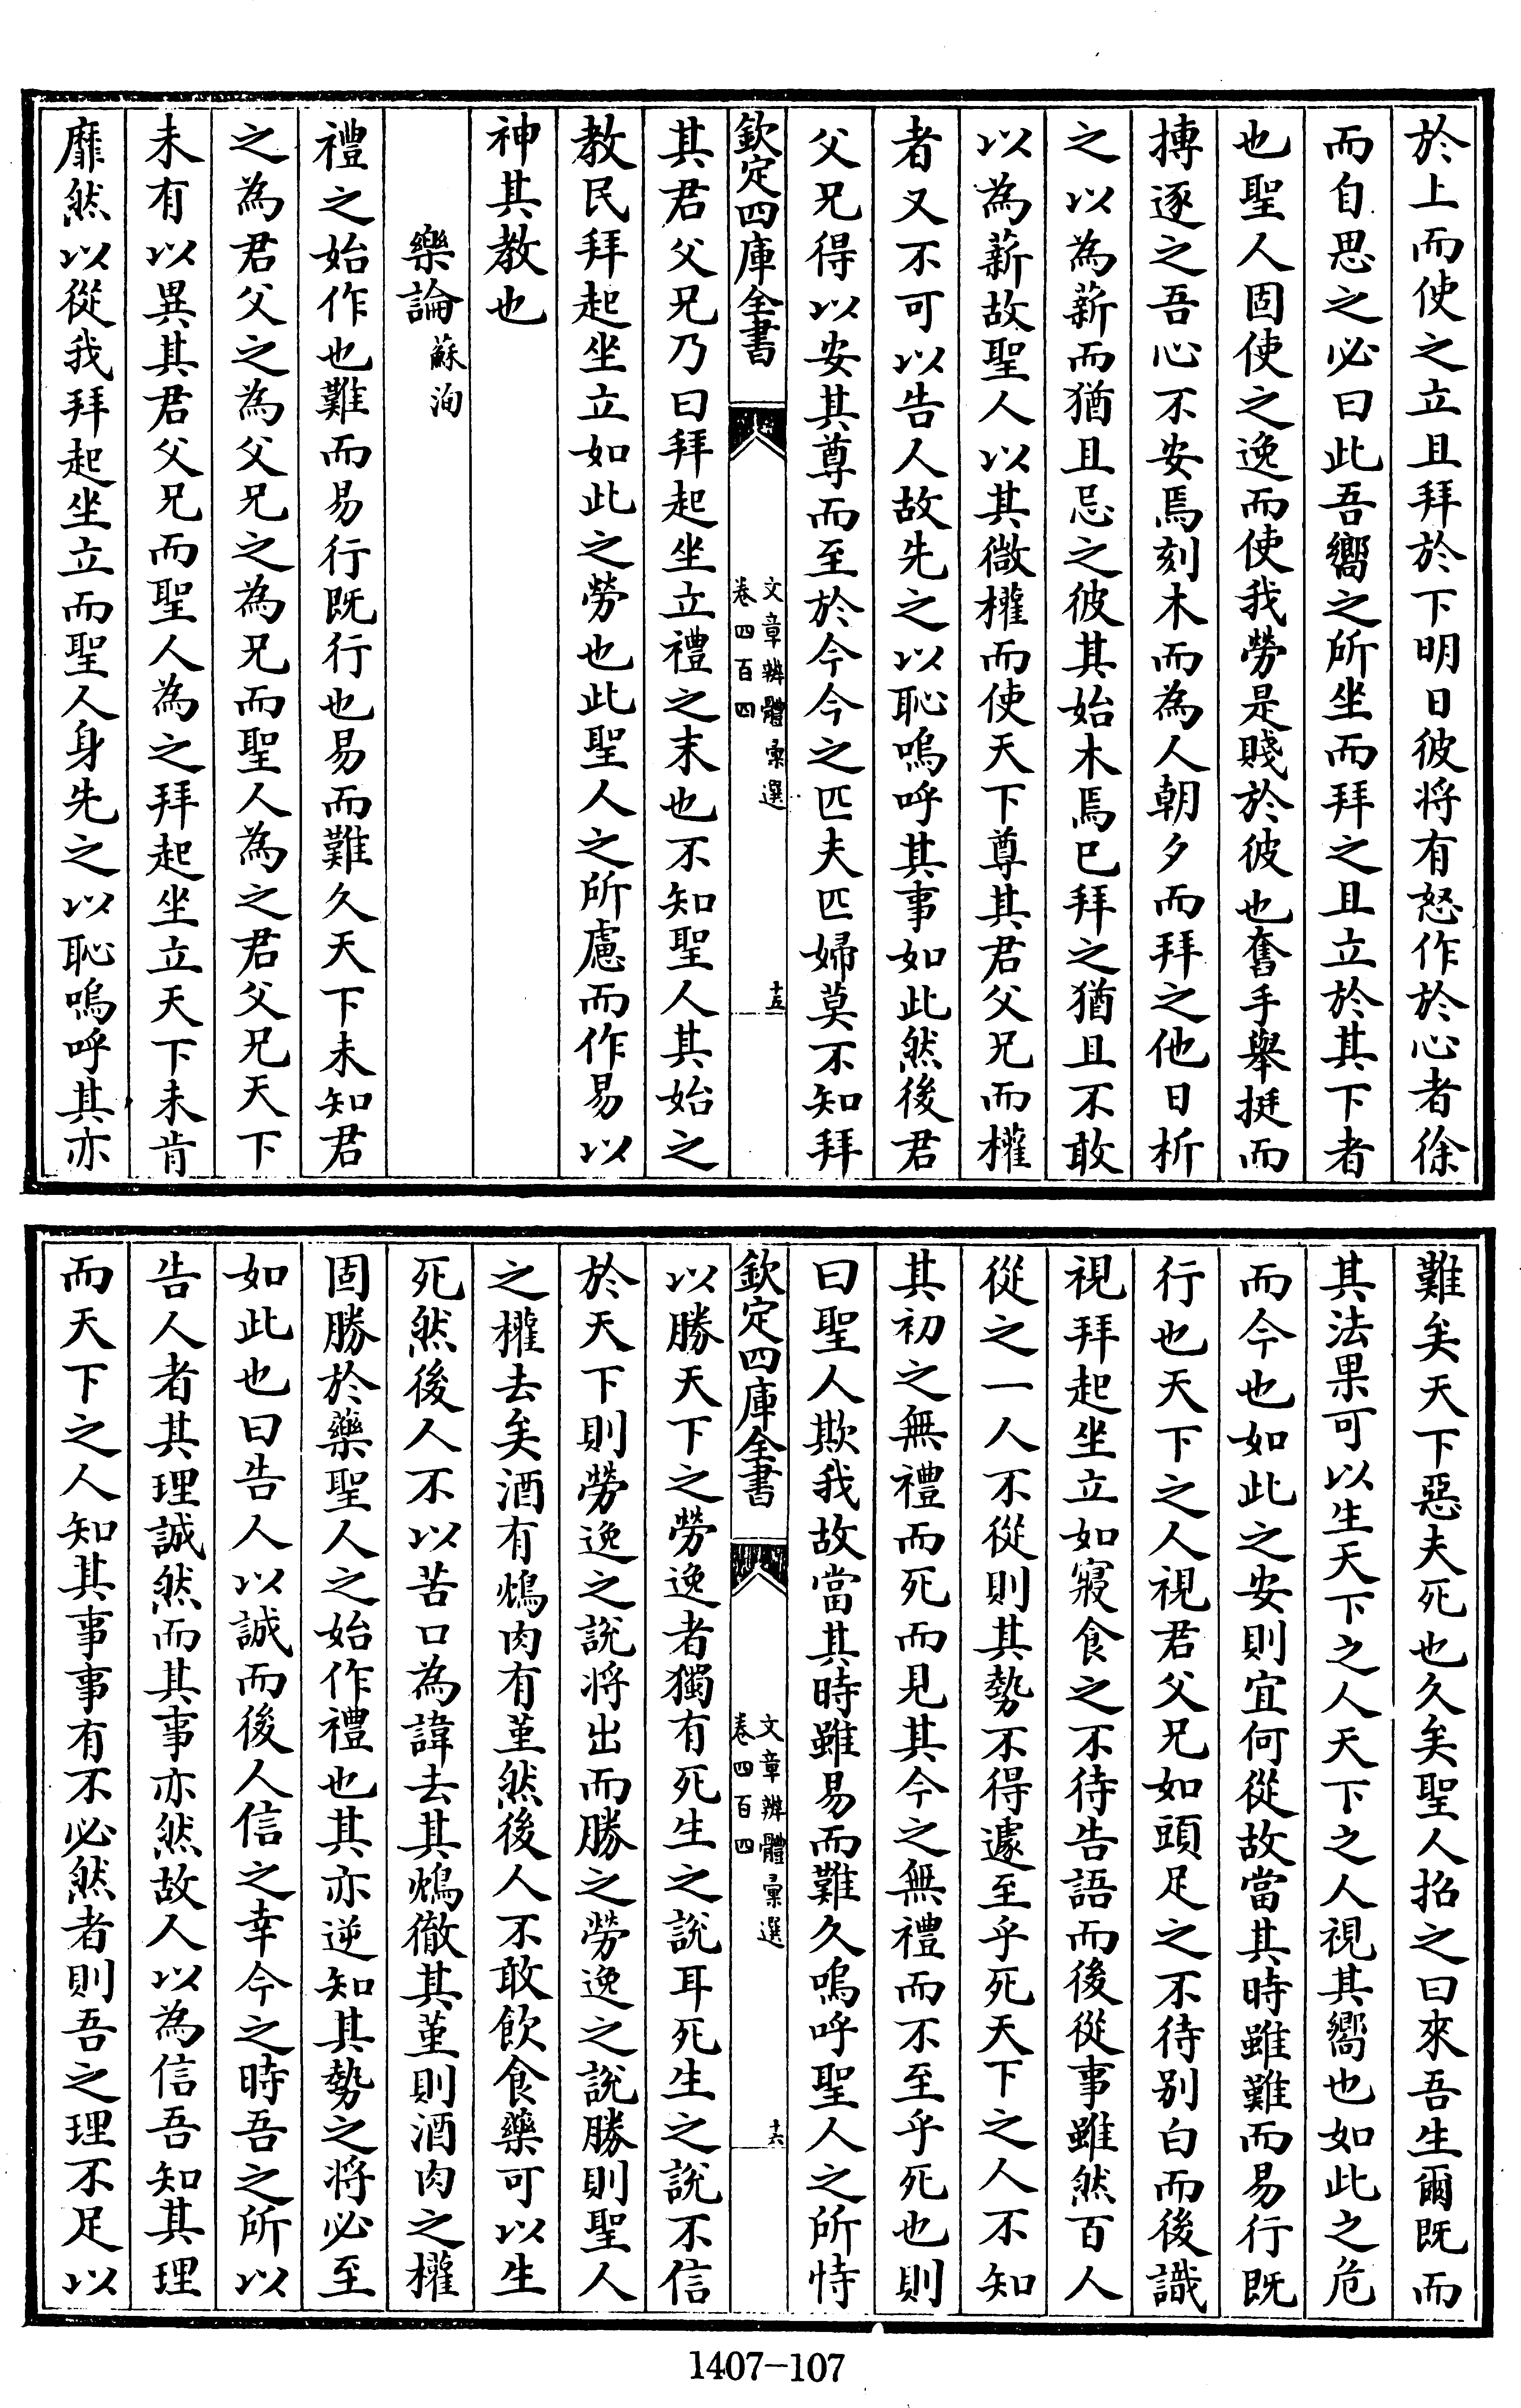 於上而使之立且拜於下明日彼将有怒作於心者徐
而自思之必曰此吾嚮之所坐而拜之且立於其下者
也聖人固使之逸而使我勞是賤於彼也奮手舉挺而
搏逐之吾心不安焉刻木而為人朝夕而拜之他日析
之以為薪而猶且忌之彼其始木焉已拜之猶且不敢
以為薪故聖人以其微權而使天下尊其君父兄而權
者又不可以告人故先之以恥嗚呼其事如此然後君
父兄得以安其尊而至於今今之匹夫匹婦莫不知拜
欽定四庫全書
文章辨體彚選
卷四百四
十五
其君父兄乃曰拜起坐立禮之末也不知聖人其始之
教民拜起坐立如此之勞也此聖人之所慮而作易以
神其教也
樂論 蘇洵
禮之始作也難而易行既行也易而難久天下未知君
之為君父之為父兄之為兄而聖人為之君父兄天下
未有以異其君父兄而聖人為之拜起坐立天下未肯
靡然以從我拜起坐立而聖人身先之以恥嗚呼其亦
難矣天下惡夫死也久矣聖人招之曰來吾生爾既而
其法果可以生天下之人天下之人視其嚮也如此之危
而今也如此之安則宜何從故當其時雖難而易行既
行也天下之人視君父兄如頭足之不待别白而後識
視拜起坐立如寢食之不待告語而後從事雖然百人
從之一人不從則其勢不得遽至乎死天下之人不知
其初之無禮而死而見其今之無禮而不至乎死也則
曰聖人欺我故當其時雖易而難久嗚呼聖人之所恃
欽定四庫全書
文章辨體彚選
卷四百四
十六
以勝天下之勞逸者獨有死生之說耳死生之說不信
於天下則勞逸之說将出而勝之勞逸之說勝則聖人
之權去矣酒有鴆肉有堇然後人不敢飲食藥可以生
死然後人不以苦口為諱去其鴆徹其堇則酒肉之權
固勝於藥聖人之始作禮也其亦逆知其勢之将必至
如此也曰告人以誠而後人信之幸今之時吾之所以
告人者其理誠然而其事亦然故人以為信吾知其理
而天下之人知其事事有不必然者則吾之理不足以
1407-107